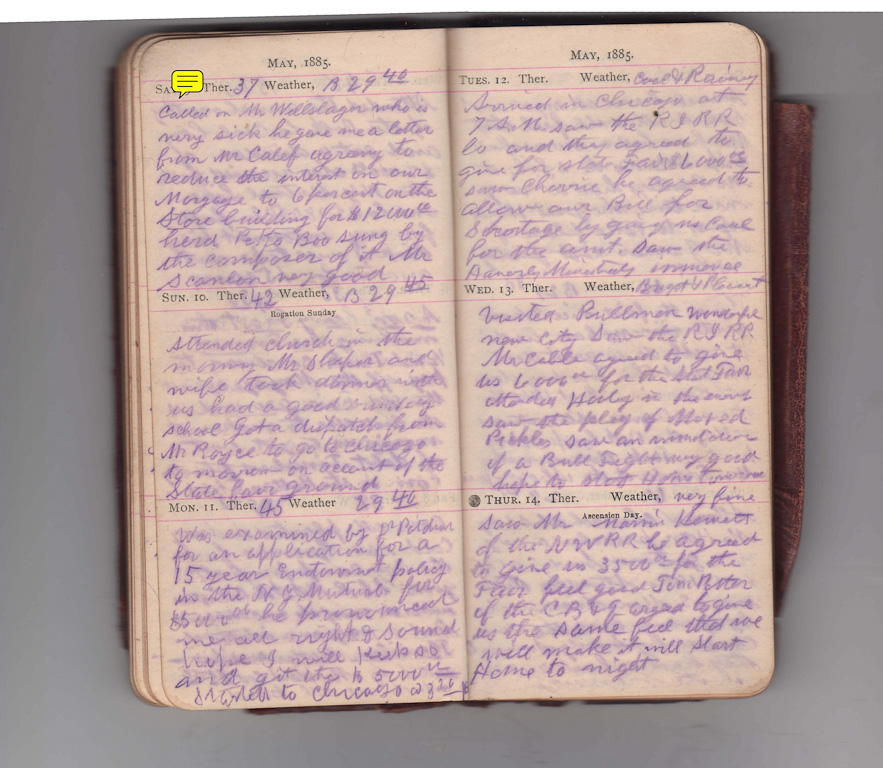 MAY, 1885.
SA Ther. 37 Weather, B 29 40
Called on Mr Wellslager who is
very sick he gave me a letter
from Mr Calef agreeing to
reduce the interest on our
Morgage to 6 percent on the
Store building for $12000 00
herd Peek a Boo sung by
the composer of it Mr
Scanlon very good
SUN. 10. Ther. 42 Weather, B 29 45
Rogation Sunday
Attended church in the
morning Mr Sleaper and
wife took dinner with
us had a good sunday
school Got a dispatch from
Mr Royce to go to chicago
to morrow on account of the
State fair ground
MON. 11. Ther. 45 Weather 29 40
Was examined by Dr
for an application for a
15 year Endowmt policy
in the N.Y. Mutual for
$5000 00 he pronounced
me all right & sound
hope I will keep so
and get the $ 5000 00
Started to chicago @ 3 20
MAY, 1885.
TUES. 12. Ther. Weather, Cool & Rainey
Arrived in Chicago at
7 A.M. saw the R I RR
Co and they agreed to
give for State Fair $6000 00
saw he agreed to
allow our Bill for
Shortage by giving us Coal
for the amt. Saw the
Minstrels immence
WED. 13. Ther. Weather, Bright & Plesent
Visited Pullman wonderful
new City Saw the R I RR
Mr Cable agreed to give
us 6000 00 for the Stat Fair
in the
saw the play of Mixed
Pickles saw an
of a Bull Fight very good
hope to start Home Tomorrow
THUR. 14. Ther. Weather, very fine
Ascension Day.
Saw Mr Marvin Hewett
of the N W RR he agreed
to give us 3500 00 for the
Fair feel good Tom Potter
of the C B & Q agreed to give
us the Same feel that we
will make it will Start
Home to night